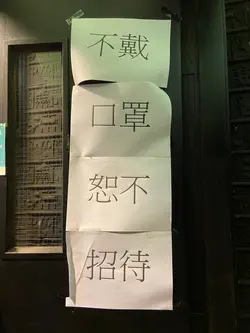 不戴
口罩
恕不
招待